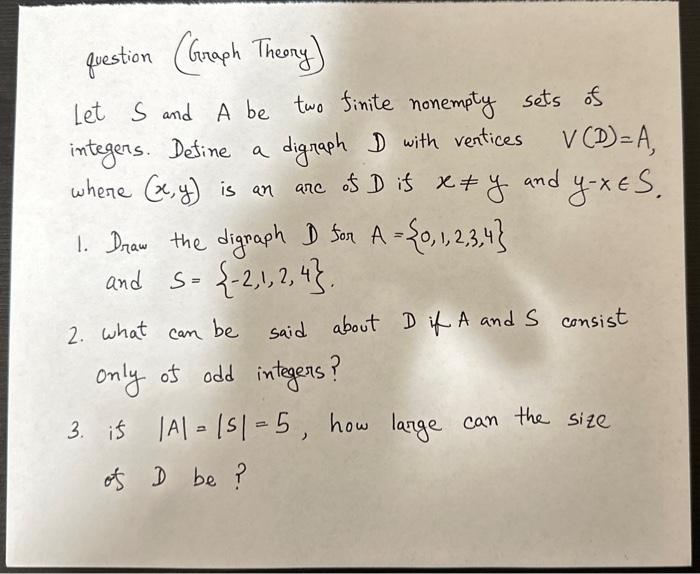 question (Graph Theory)
Let S and A be two finite nonempty sets of
integers. Define a digraph D with vertices V(D)=A,
where (x,y) is an arc of D if x≠y and y-x∈S.
1. Draw the digraph D for A={0,1,2,3,4}
and S={-2,1,2,4}.
2. what can be said about D if A and S consist
only of odd integers?
3. if |A|=|S|=5, how large can the size
of D be?